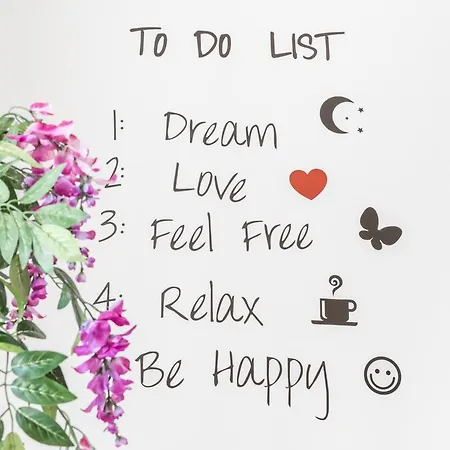 TO DO LIST
1: Dream
2: Love
3: Feel Free
4: Relax
Be Happy